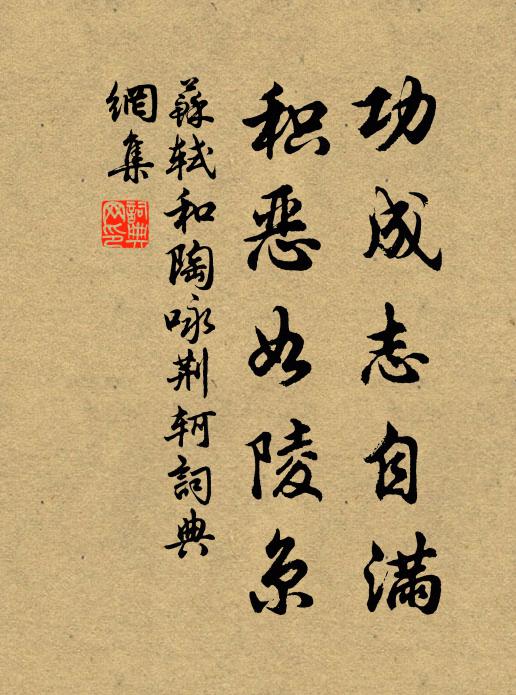 功成志自满
积恶如陵京
蘇軾和陶咏荆轲詞典
網集
詞典
网印